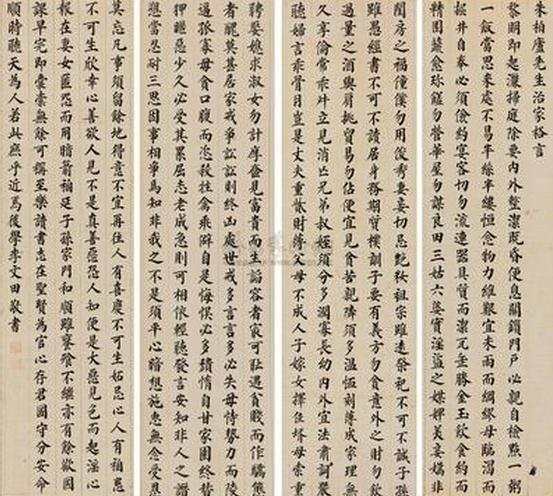 朱柏廬先生治家格言
黎明即起灑掃庭除要內外整潔既昏便息關鎖門戶必親自檢點一粥
一飯當思來處不易半絲半縷恒念物力維艱宜未雨而綢繆毋臨渴而
掘井自奉必須儉約宴客切勿流連器具質而潔瓦缶勝金玉飲食約而
精園蔬愈珍饈勿營華屋勿謀良田三姑六婆實淫盜之媒婢美妾嬌非
閨房之福僮僕勿用俊秀妻妾切忌艷妝祖宗雖遠祭祀不可不誠子孫
雖愚經書不可不讀居身務期質樸訓子要有義方勿貪意外之財勿飲
過量之酒與肩挑貿易勿佔便宜見貧苦親鄰須多溫恤刻薄成家理無
久享倫常乖舛立見消亡兄弟叔姪須分多潤寡長幼內外宜法肅詞嚴
聽婦言乖骨肉豈是丈夫重貲財薄父母不成人子嫁女擇佳婿毋索重
聘娶媳求淑女勿計厚奩見富貴而生諂容者可恥遇貧賤而作驕態
者莫甚居家戒爭訟訟則終凶處世戒多言言多必失毋恃勢力而凌
逼孤寡毋貪口腹而恣殺牲禽乖僻自是悔悞必多頹惰自甘家園終替
狎暱惡少久必受其累屈志老成急則可相依輕聽發言安知非人之譖
愬當忍耐三思因事相爭焉知非我之不是須平心暗想施惠無念受恩
莫忘凡事須留餘地得意不宜再往人有喜慶不可生妬忌心人有禍患
不可生欣幸心善欲人見不是真善惡恐人知便是大惡見色而起淫心
報在妻女匿怨而用暗箭禍延子孫家門和順雖饔飧不繼亦有餘歡國
課早完即囊橐無餘可稱至樂讀書志在聖賢為官心存君國守分安命
順時聽天為人若此庶乎近焉後學李文田敬書